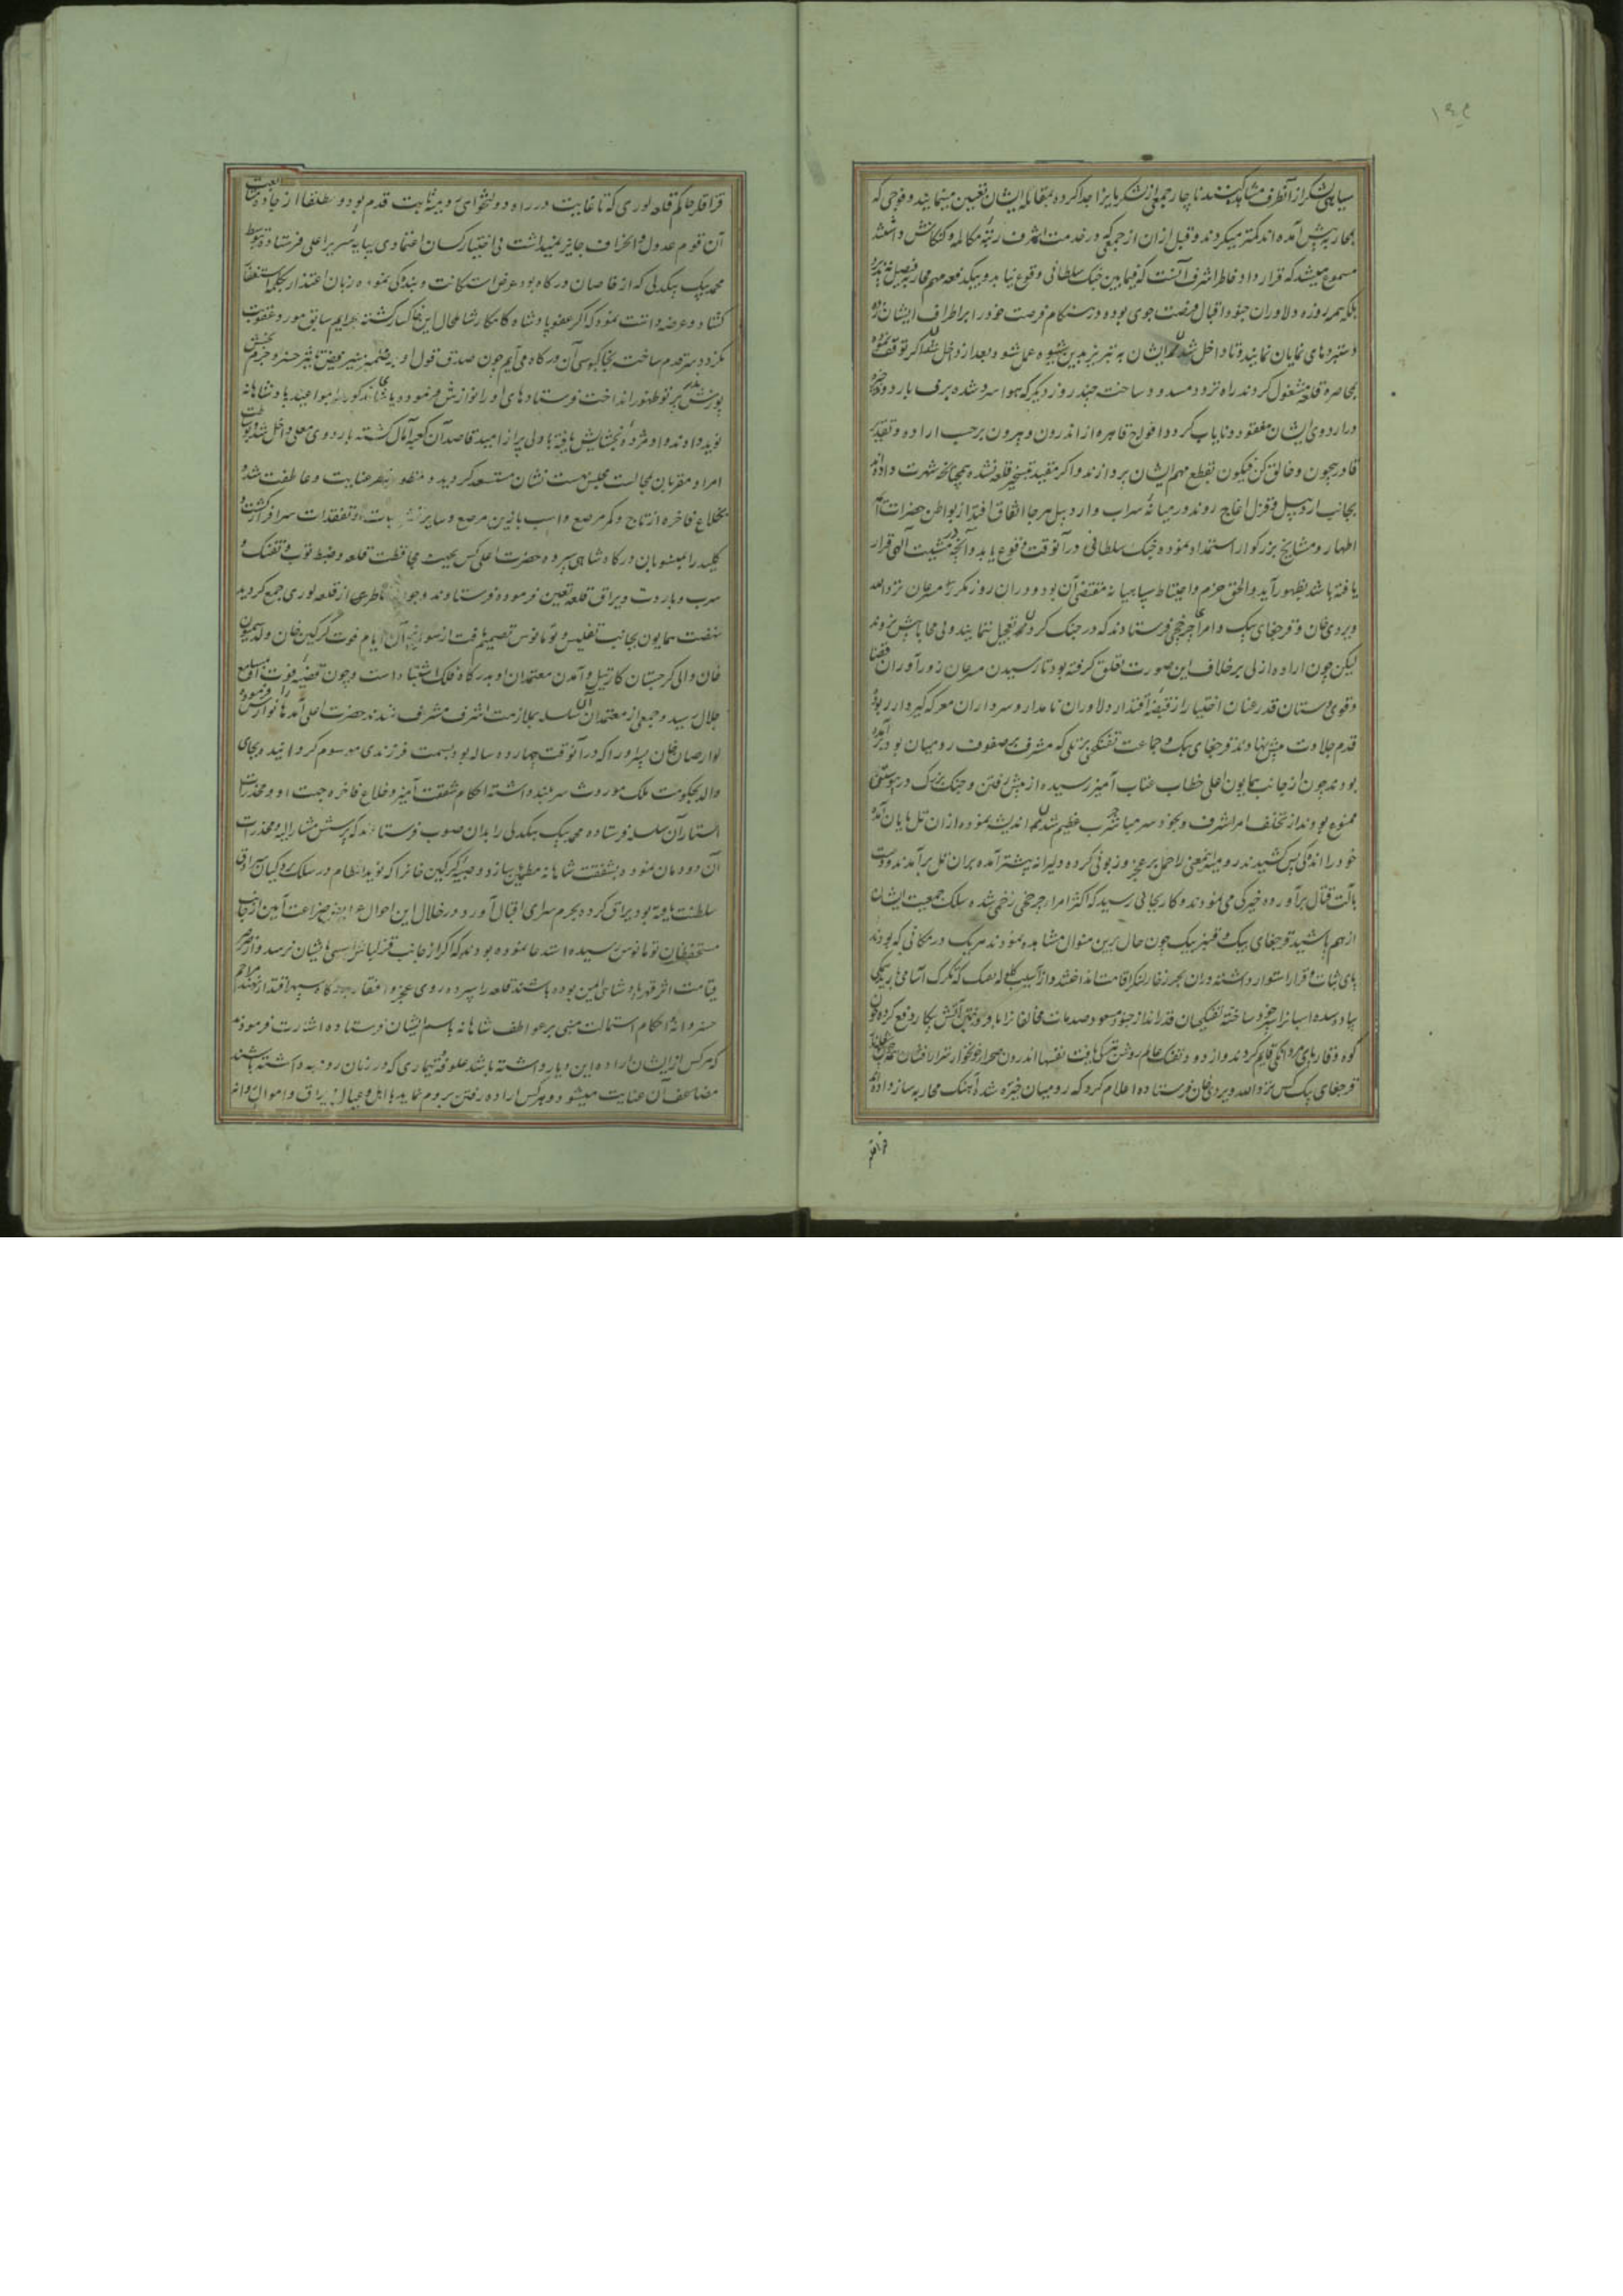 سیاهی لشکر از آنطرف مشاهده کنند ناچار جمعی از لشکریان را جدا کرده بمقابله ایشان تعیین مینمایند و فوجی که
بمحاربه پیش آمده‌اند کمتر میکردند و قبل ازان از جمعی که در خدمت اشرف رتبه مکالمه و کنکاش داشتند
مسموع میشد که قرارداد خاطر اشرف آنست که فیمابین جنگ سلطانی وقوع نیابد و بیکدفعه مهم محاربه فیصل نپذیرد
بلکه همه روزه دلاوران جنود اقبال فرصت جوی بوده در هنگام فرصت خود را بر اطراف ایشان زده
دستبردهای نمایان نمایند و تا داخل شدن ایشان به تبریز بدین شیوه عمل شود و بعد از داخل شدن اکر توقف نموده
بمحاصره قلعه مشغول کردند راه تردد مسدود ساخته چند روز دیگر که هوا سرد شده برف بارد و
در اردوی ایشان مفقود و نایاب کردد افواج قاهره از اندرون و بیرون برحسب اراده و تقدیر
قادر بیچون و خالق کن فیکون بقطع مهم ایشان پردازند و اکر مقید بتسخیر قلعه نشده همچنانکه شهرت داده‌اند
بجانب اردبیل و قزل اغاج روند در میانه سراب و اردبیل هرجا اتفاق افتد از بواطن حضرات ائمه
اطهار و مشایخ بزرکوار استمداد نموده جنک سلطانی در آنوقت وقوع یابد و آنچه در مشیت الهی قرار
یافته باشد بظهور آید والحق حزم و احتیاط سپاهیانه مقتضی آن بود و دران روز مکرر مسرعان نزد الله
ویردی خان و قرجغای بیک و امراء چرخچی فرستادند که در جنک کردن تعجیل ننمایند و بی محابا پیش نروند
لیکن چون اراده ازلی برخلاف این صورت تعلق کرفته بود تا رسیدن مسرعان زورآوران قضا
و قوی دستان قدر عنان اختیار از قبضه اقتدار دلاوران نامدار و سرداران معرکه کیرودار ربوده
قدم جلادت پیش نهادند قرجغای بیک و جماعت تفنکچی بر تلی که مشرف بر صفوف رومیان بود برآمده
بودند چون از جانب همایون اعلی خطاب عتاب آمیز رسیده از پیش رفتن و جنک بزرک در پیوستن
ممنوع بودند از تخلف امر اشرف و بخود سر مباشر حرب عظیم شدن اندیشه نموده ازان تل پایان آمده
خود را اندکی پس کشیدند رومیه اینمعنی را حمل بر عجز و زبونی کرده دلیرانه پیشتر آمده بران تل برآمدند و دست
بآلت قتال برآورده خیرکی می‌نمودند و کار بجائی رسید که اکثر امراء چرخچی زخمی شده سلک جمعیت ایشان
از هم پاشید قرجغای بیک و قنبر بیک چون حال برین منوال مشاهده نمودند هریک در مکانی که بودند
پای ثبات و قرار استوار داشته دران بحر زخار لنکر اقامت انداختند و از آسیب کلوله تفنک که تکرک آسا می‌بارید
پیاده شده اسبانرا سپر خود ساخته تفنکچیان قدرانداز جنود مسعود صدمات مخالفانرا باو ردختن آتش پیکار دفع کرده چون
کوه وقار پای مردانکی قایم کردند و از دود تفنک عالم روشن تیرکی یافت نفسها اندرون صحرا خونخوار
قرجغای بیک کس نزد الله ویردی خان فرستاده اعلام کرد که رومیان خیره شده آهنک محاربه ساز داده‌اند
قراقلر
قراقلر حاکم قلعه لوری که تا غایت در راه دولتخواهی رومیه ثابت قدم بود و مطلقا از جاده متابعت
آن قوم عدول و انحراف جایز نمیداشت بی اختیار کسان اعتمادی بپایه سریر اعلی فرستاده بتوسط
محمد بیک بیکدلی که از خاصان درکاه بود عرض استکانت و بندکی نموده زبان اعتذار
کشاد و عرضه داشت نمود که اکر عفو پادشاه کامکار شامل حال این خاکسار کشته بجرایم سابق مورد عقوبت
نکردد سر قدم ساخته بخاکبوسی آن درکاه می‌آیم چون صدق قول او بر ضمیر منیر
پوزش پرتو ظهور انداخت فرستادهای او را نوازش فرموده پاشای مذکور را بمواعید پادشاهانه
نوید دادند و او مژده بخشایش یافته با دلی پر از امید قاصد آن کعبه آمال کشته باردوی معلی داخل شد
امرا و مقربان بمجالست مجلس بهشت نشان مستسعد کردید و منظور نظر عنایت و عاطفت شده
بخلاع فاخره از تاج و کمر مرصع و اسب با زین مرصع و سایر و تفقدات سرافراز کشت
کلید را بمنسوبان درکاه شاهی سپرد و حضرت اعلی کس بجهت محافظت قلعه و ضبط توپ و تفنک و
سرب و باروت و یراق قلعه تعیین فرموده فرستادند و چون خاطر از قلعه لوری جمع کردید
نهضت همایون بجانب تفلیس و تومانوس تصمیم یافت از سوانح آن ایام فوت کرکین خان ولد سمیون
خان والی کرجستان کارتیل و آمدن معتمدان او بدرکاه فلک اشتباه است و چون قضیه فوت او بمسامع
جلال رسید و جمعی از معتمدان آن سلسله بملازمت اشرف مشرف شدند حضرت اعلی آمدها را نوازش فرموده
لوارصاب خان پسر او را که در آنوقت چهارده ساله بود بسمت فرزندی موسوم کردانیده بجای
والد بحکومت ملک موروث سربلند داشته احکام شفقت آمیز و خلاع فاخره جهت او و مخدرات
استار آن سلسله فرستاده محمد بیک بیکدلی را بدان صوب فرستادند که پرسش مشارالیه و مخدرات
آن دودمان نموده بشفقت شاهانه مطمئن سازد و صبیه کرکین خانرا که نوید انتظام در سلک پردکیان سرادق
سلطنت یافته بود یراق کرده بحرم سرای اقبال آورد و در خلال این احوال عرایض ضراعت آمین از جانب
مستحفظان تومانوس رسیده استدعا نموده بودند که اکر از جانب قزلباش آسیبی بایشان نرسد و از
قیامت اثر قهر پادشاهی ایمن بوده باشند قلعه را سپرده روی عجز و افتقار بدرکاه سپهر اقتدار نهند مراحم
خسروانه احکام استمالت مبنی بر عواطف شاهانه باسم ایشان فرستاده اشارت فرمودند
که هرکس از ایشان اراده این دیار داشته باشد علوفه و تیماری که در زمان رومیه داشته باشند
مضاعف آن عنایت میشود و هرکس اراده رفتن بروم نماید با اهل و عیال و یراق و اموال روانه